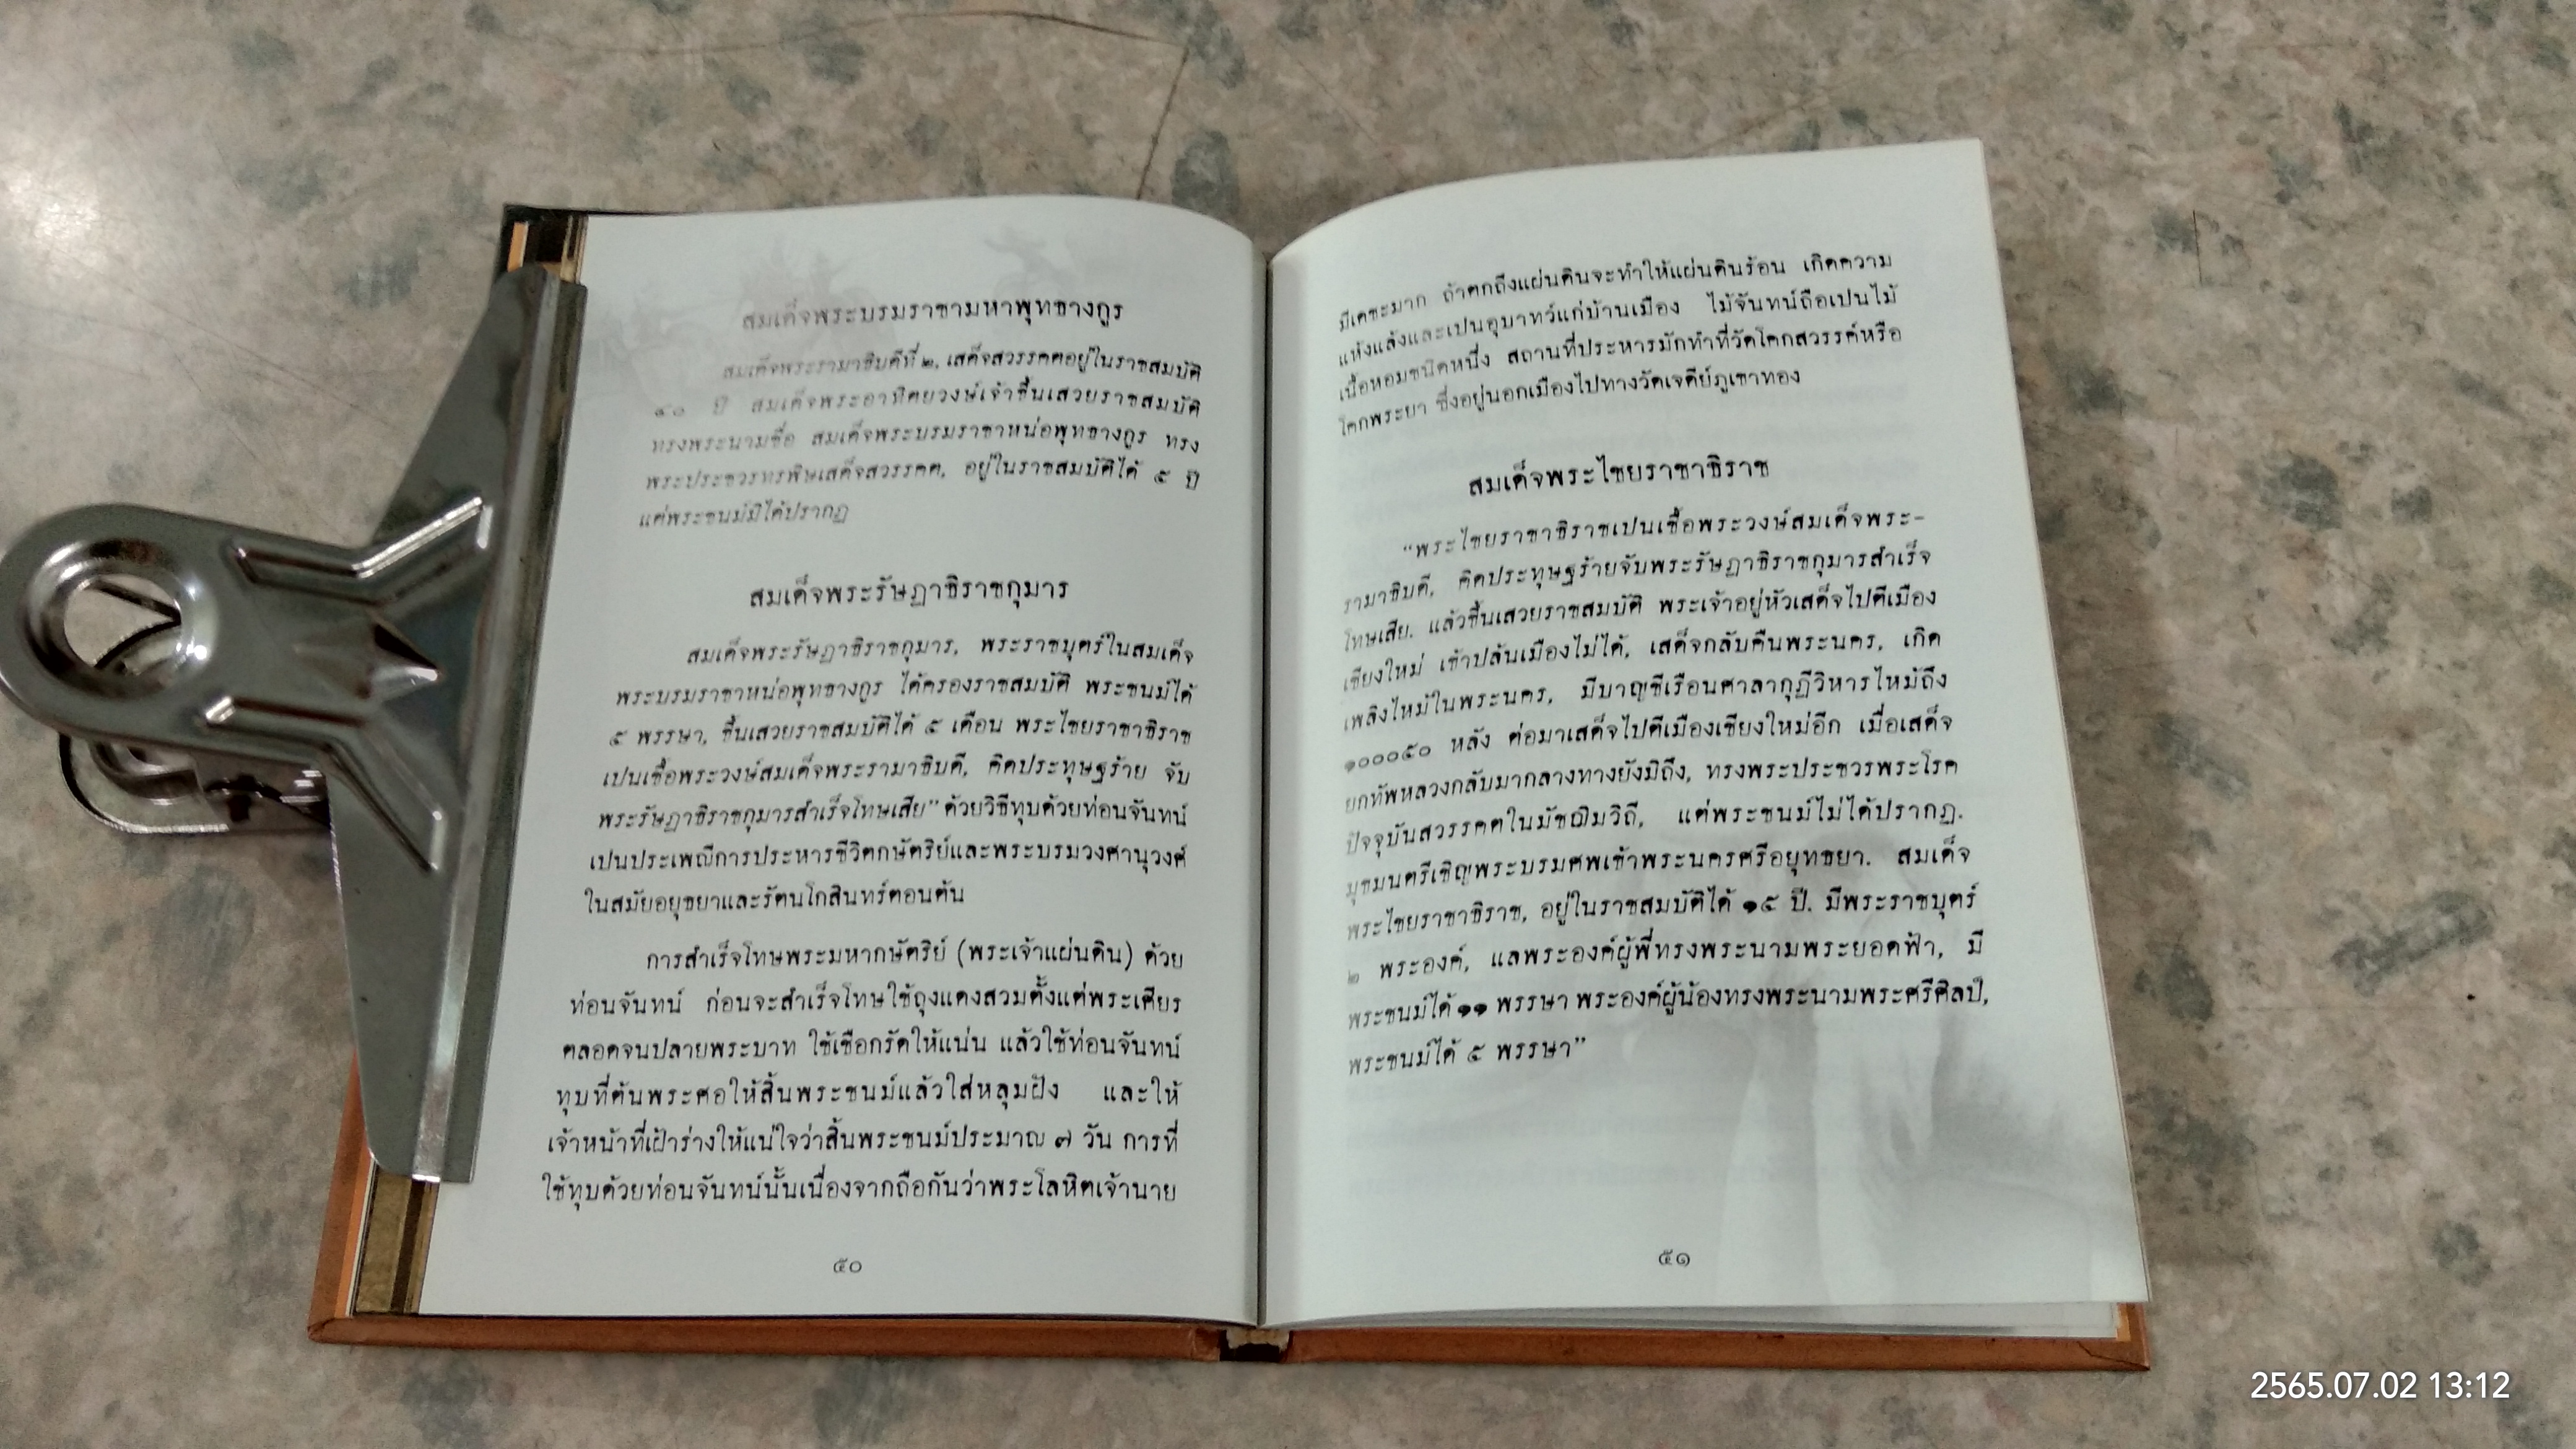 สมเด็จพระบรมราชามหาพุทธางกูร
สมเด็จพระรามาธิบดีที่ ๒, เสด็จสวรรคตอยู่ในราชสมบัติ
๔๐ ปี สมเด็จพระอาทิตยวงษ์เจ้าขึ้นเสวยราชสมบัติ
ทรงพระนามชื่อ สมเด็จพระบรมราชาหน่อพุทธางกูร ทรง
พระประชวรทรพิษเสด็จสวรรคต, อยู่ในราชสมบัติได้ ๕ ปี
แต่พระชนม์มิได้ปรากฏ
สมเด็จพระรัษฎาธิราชกุมาร
สมเด็จพระรัษฎาธิราชกุมาร, พระราชบุตร์ในสมเด็จ
พระบรมราชาหน่อพุทธางกูร ได้ครองราชสมบัติ พระชนม์ได้
๕ พรรษา, ขึ้นเสวยราชสมบัติได้ ๕ เดือน พระไชยราชาธิราช
เปนเชื้อพระวงษ์สมเด็จพระรามาธิบดี, คิดประทุษฐร้าย จับ
พระรัษฎาธิราชกุมารสำเร็จโทษเสีย” ด้วยวิธีทุบด้วยท่อนจันทน์
เปนประเพณีการประหารชีวิตกษัตริย์และพระบรมวงศานุวงศ์
ในสมัยอยุธยาและรัตนโกสินทร์ตอนต้น
การสำเร็จโทษพระมหากษัตริย์ (พระเจ้าแผ่นดิน) ด้วย
ท่อนจันทน์ ก่อนจะสำเร็จโทษใช้ถุงแดงสวมตั้งแต่พระเศียร
ตลอดจนปลายพระบาท ใช้เชือกรัดให้แน่น แล้วใช้ท่อนจันทน์
ทุบที่ต้นพระศอให้สิ้นพระชนม์แล้วใส่หลุมฝัง และให้
เจ้าหน้าที่เฝ้าร่างให้แน่ใจว่าสิ้นพระชนม์ประมาณ ๗ วัน การที่
ใช้ทุบด้วยท่อนจันทน์นั้นเนื่องจากถือกันว่าพระโลหิตเจ้านาย
๕๐
มีเดชะมาก ถ้าตกถึงแผ่นดินจะทำให้แผ่นดินร้อน เกิดความ
แห้งแล้งและเปนอุบาทว์แก่บ้านเมือง ไม้จันทน์ถือเปนไม้
เนื้อหอมชนิดหนึ่ง สถานที่ประหารมักทำที่วัดโคกสวรรค์หรือ
โคกพระยา ซึ่งอยู่นอกเมืองไปทางวัดเจดีย์ภูเขาทอง
สมเด็จพระไชยราชาธิราช
“พระไชยราชาธิราชเปนเชื้อพระวงษ์สมเด็จพระ-
รามาธิบดี, คิดประทุษฐร้ายจับพระรัษฎาธิราชกุมารสำเร็จ
โทษเสีย. แล้วขึ้นเสวยราชสมบัติ พระเจ้าอยู่หัวเสด็จไปตีเมือง
เชียงใหม่ เข้าปล้นเมืองไม่ได้, เสด็จกลับคืนพระนคร, เกิด
เพลิงไหม้ในพระนคร, มีบาญชีเรือนศาลากุฎีวิหารไหม้ถึง
๑๐๐๐๕๐ หลัง ต่อมาเสด็จไปตีเมืองเชียงใหม่อีก เมื่อเสด็จ
ยกทัพหลวงกลับมากลางทางยังมิถึง, ทรงพระประชวรพระโรค
ปัจจุบันสวรรคตในมัชฌิมวิถี, แต่พระชนม์ไม่ได้ปรากฏ.
มุขมนตรีเชิญพระบรมศพเข้าพระนครศรีอยุทธยา. สมเด็จ
พระไชยราชาธิราช, อยู่ในราชสมบัติได้ ๑๕ ปี. มีพระราชบุตร์
๒ พระองค์, แลพระองค์ผู้พี่ทรงพระนามพระยอดฟ้า, มี
พระชนม์ได้ ๑๑ พรรษา พระองค์ผู้น้องทรงพระนามพระศรีศิลป์,
พระชนม์ได้ ๕ พรรษา”
๕๑
2565.07.02 13:12